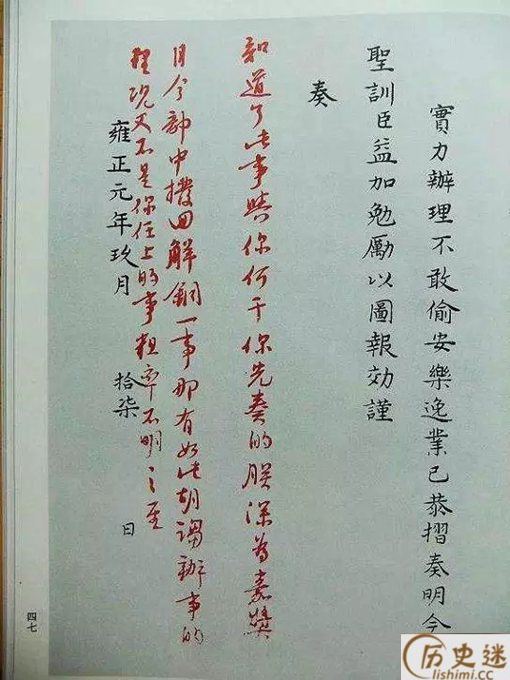 實力辦理不敢偷安樂逸業已恭摺奏明今
聖訓臣益加勉勵以圖報効謹
奏
知道了此事與你何干你先奏的朕深為嘉獎
目今部中撥回解銅一事那有如此胡謅辦事的
理况又不是你任上的事粗率不明之至
雍正元年玖月 拾柒 日
四七
历史迷
lishimi.cc